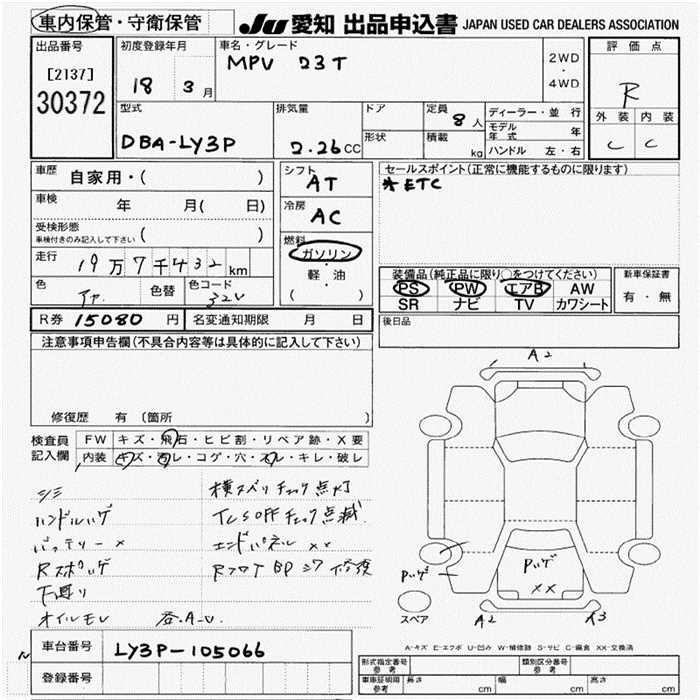 車内保管・守衛保管 JU 愛知 出品申込書 JAPAN USED CAR DEALERS ASSOCIATION
出品番号 初度登録年月 車名・グレード 評価点
[2137] 18 3月 MPV 23T 2WD・4WD R
30372
型式 排気量 ドア 定員 8人 ディーラー・並行 外装 内装
DBA-LY3P 2.26CC 形状 積載 kg モデル年式 年 C C
ハンドル 左・右
車歴 自家用・( ) シフト AT セールスポイント(正常に機能するものに限ります)
車検 年 月( 日) 冷房 AC ETC
受検形態 ( )
車検付きのみ記入して下さい
燃料 ガソリン・軽油 ( )
走行 19万7千432km
装備品(純正品に限り○をつけてください) 新車保証書
色 色替 色コード 32V PS PW エアB AW 有・無
SR ナビ TV カワシート
R券 15080円 名変通知期限 月 日 後日品
注意事項申告欄(不具合内容等は具体的に記入して下さい)
A2
修復歴 有(箇所
検査員記入欄 FW キズ・飛石・ヒビ割・リペア跡・X要
内装 キズ・汚レ・コゲ・穴・スレ・キレ・破レ
シミ 横スベリチェック点灯
ハンドルハゲ TCS OFFチェック点滅
バッテリー× エンドパネル ××
Rスポハゲ
下廻り
オイルモレ
Pハゲ Pハゲ
××
スペア A2 A3
A-キズ E-エクボ U-凹み W-補修跡 S-サビ C-腐食 XX-交換済
車台番号 LY3P-105066
登録番号
型式指定番号 参考 類別区分番号 参考
車庫証明用 参考 長さ cm 幅 cm 高さ cm